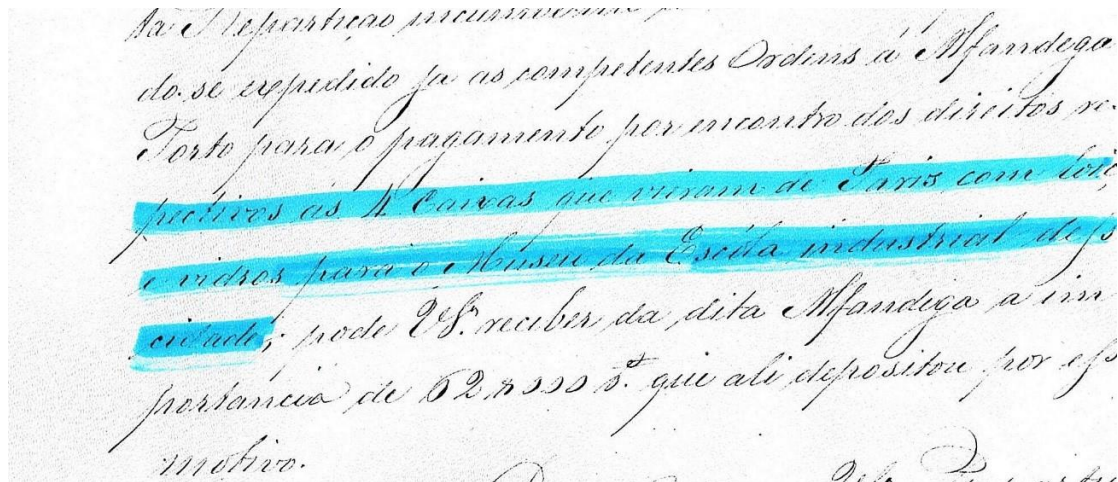 ta Repartição
do-se expedido ja as competentes Ordens á Alfandega
Porto para o pagamento por encontro dos direitos re-
pectivos ás 4 Caixas que vieram de Paris com loiç
e vidros para o Museu da Escóla industrial des
cidade; pode VSª. receber da dita Alfandega a im
portancia de 62$000 rs. que ali depositou por es
motivo.